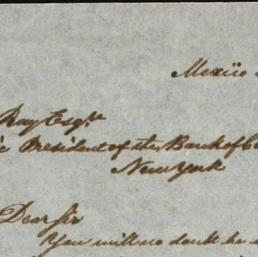 Mexico
Ray Esqre
President of the Bank of
New York
Dear Sir
You will no doubt be